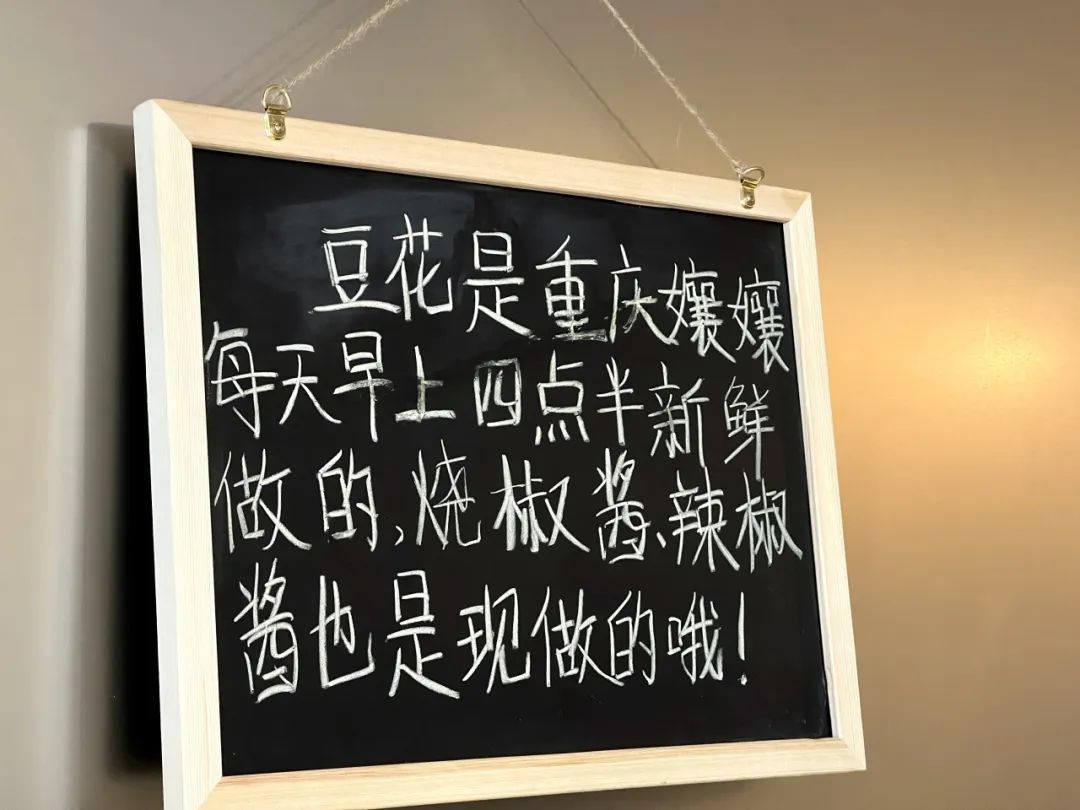 豆花是重庆孃孃
每天早上四点半新鲜
做的、烧椒酱、辣椒
酱也是现做的哦!